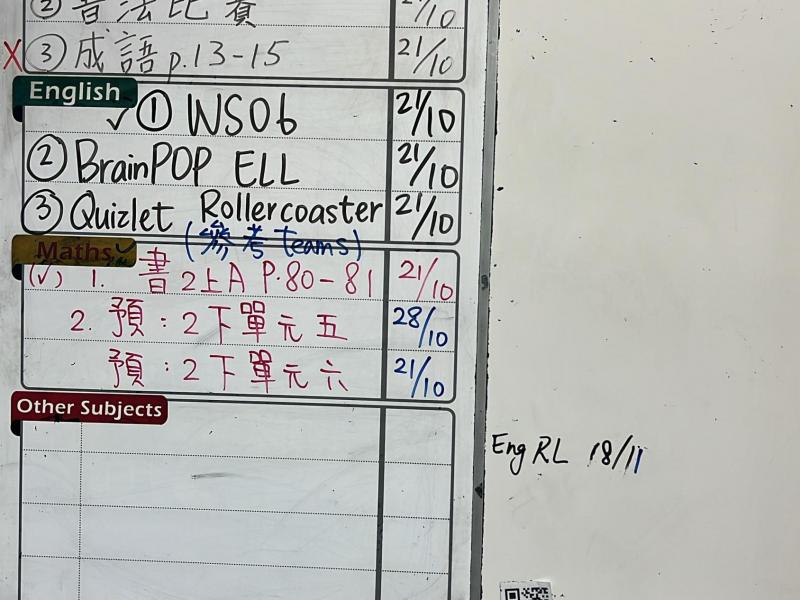 ② 書法比賽 21/10
X ③ 成語 p.13-15 21/10
English
✓ ① WS06 21/10
② BrainPOP ELL 21/10
③ Quizlet Rollercoaster 21/10
(參考 teams)
Maths ✓
(✓) 1. 書2上A P.80-81 21/10
2. 預:2下單元五 28/10
預:2下單元六 21/10
Other Subjects
Eng RL 18/11